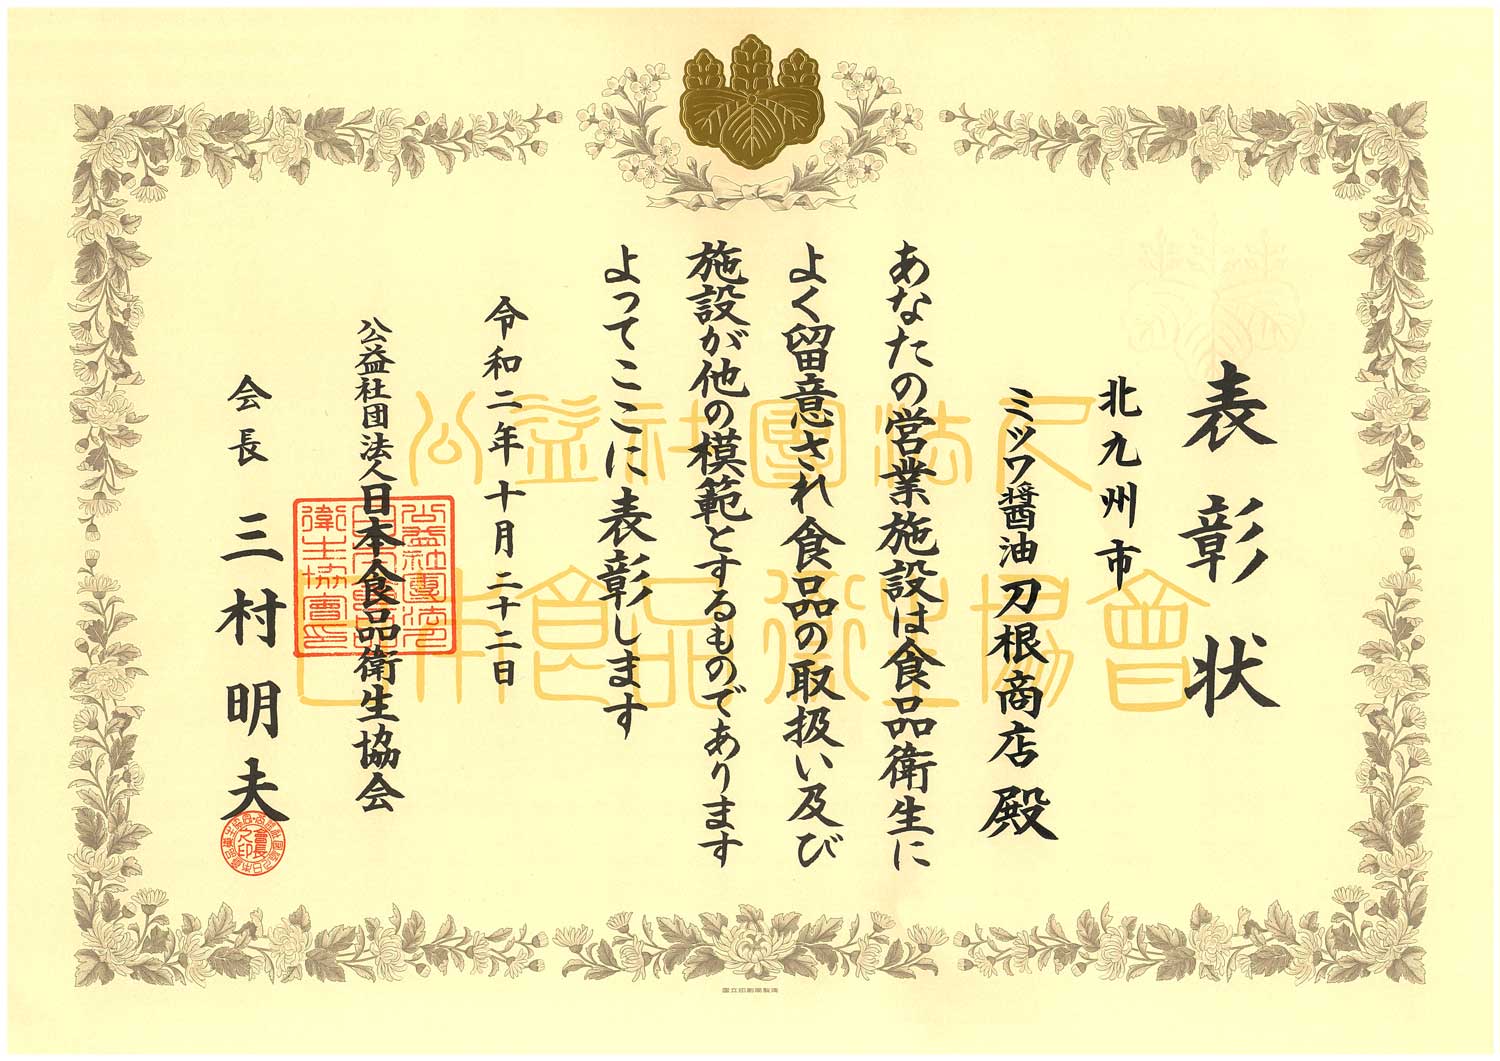 表彰状
北九州市
ミツワ醤油刀根商店殿
あなたの営業施設は食品衛生に
よく留意され食品の取扱い及び
施設が他の模範とするものであります
よってここに表彰します
令和二年十月二十二日
公益社団法人日本食品衛生協会
会長 三村明夫
公益社團法人
日本食品衛生協會
公益社團法人日本食品衛生協會印
會長之印
国立印刷局製造